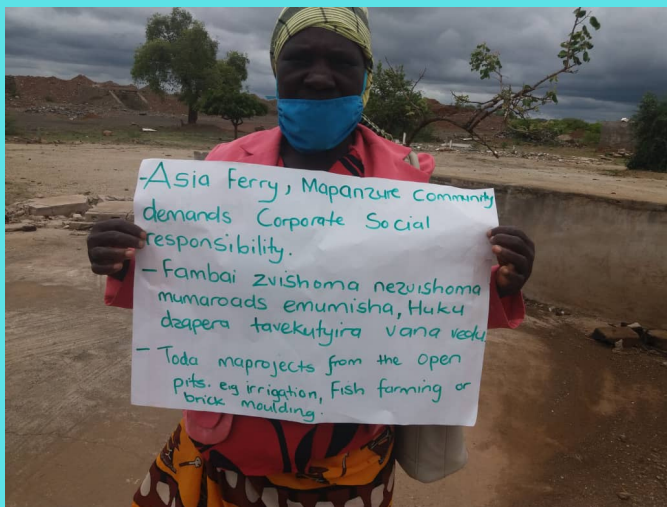 -Asia Ferry, Mapanzure Community
demands Corporate Social
responsibility.
-Fambai zvishoma nezvishoma
mumaroads emumisha, Huku
dzapera tavekutyira vana vedu
- Toda maprojects from the open
pits. e.g irrigation, Fish farming or
brick moulding.